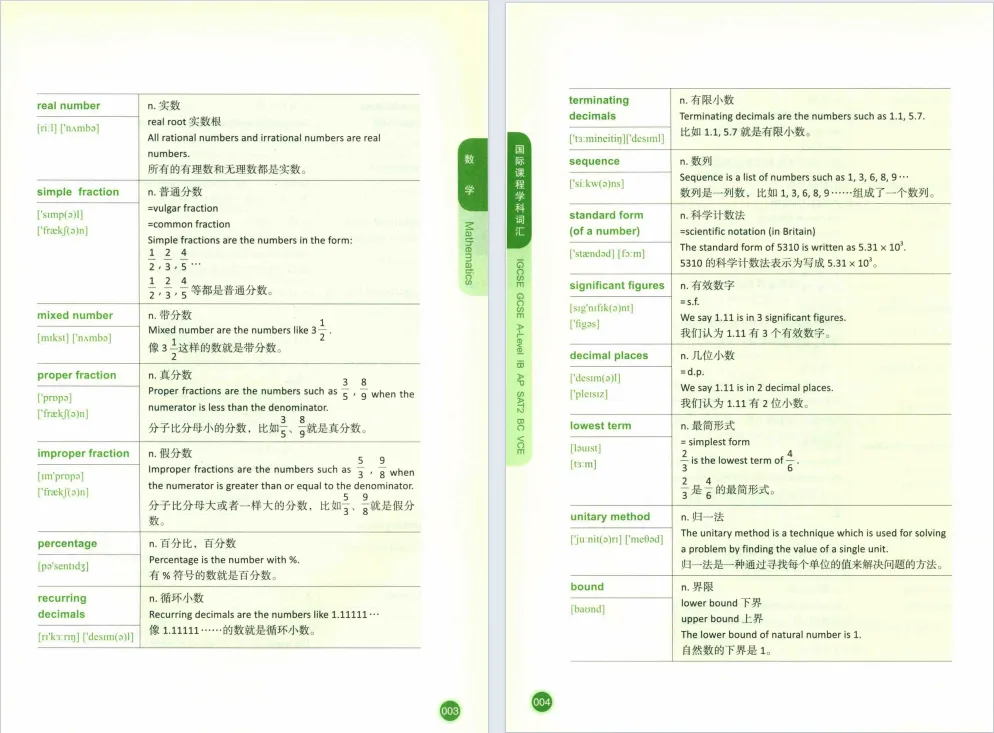 real number
[riːl] ['nʌmbə]
n. 实数
real root 实数根
All rational numbers and irrational numbers are real
numbers.
所有的有理数和无理数都是实数。
simple fraction
['sɪmp(ə)l]
['frækʃ(ə)n]
n. 普通分数
=vulgar fraction
=common fraction
Simple fractions are the numbers in the form:
1/2, 2/3, 4/5 …
1/2, 2/3, 4/5 等都是普通分数。
mixed number
[mɪkst] ['nʌmbə]
n. 带分数
Mixed number are the numbers like 3 1/2.
像 3 1/2 这样的数就是带分数。
proper fraction
['prɒpə]
['frækʃ(ə)n]
n. 真分数
Proper fractions are the numbers such as 3/5, 8/9 when the
numerator is less than the denominator.
分子比分母小的分数，比如 3/5、8/9 就是真分数。
improper fraction
[ɪm'prɒpə]
['frækʃ(ə)n]
n. 假分数
Improper fractions are the numbers such as 5/3, 9/8 when
the numerator is greater than or equal to the denominator.
分子比分母大或者一样大的分数，比如 5/3、9/8 就是假分
数。
percentage
[pə'sentɪdʒ]
n. 百分比，百分数
Percentage is the number with %.
有 % 符号的数就是百分数。
recurring
decimals
[rɪ'kɜːrɪŋ] ['desɪm(ə)l]
n. 循环小数
Recurring decimals are the numbers like 1.11111 …
像 1.11111 ……的数就是循环小数。
数学
Mathematics
003
国际课程学科词汇
IGCSE GCSE A-Level IB AP SAT2 BC VCE
terminating
decimals
['tɜːmineitiŋ]['desiml]
n. 有限小数
Terminating decimals are the numbers such as 1.1, 5.7.
比如 1.1, 5.7 就是有限小数。
sequence
['siːkw(ə)ns]
n. 数列
Sequence is a list of numbers such as 1, 3, 6, 8, 9 …
数列是一列数，比如 1, 3, 6, 8, 9 ……组成了一个数列。
standard form
(of a number)
['stændəd] [fɔːm]
n. 科学计数法
=scientific notation (in Britain)
The standard form of 5310 is written as 5.31 × 10³.
5310 的科学计数法表示为写成 5.31 × 10³。
significant figures
[sɪg'nɪfɪk(ə)nt]
['fɪgəs]
n. 有效数字
= s.f.
We say 1.11 is in 3 significant figures.
我们认为 1.11 有 3 个有效数字。
decimal places
['desɪm(ə)l]
['pleɪsɪz]
n. 几位小数
= d.p.
We say 1.11 is in 2 decimal places.
我们认为 1.11 有 2 位小数。
lowest term
[ləuɪst]
[tɜːm]
n. 最简形式
= simplest form
2/3 is the lowest term of 4/6.
2/3 是 4/6 的最简形式。
unitary method
['juːnit(ə)rɪ] ['meθəd]
n. 归一法
The unitary method is a technique which is used for solving
a problem by finding the value of a single unit.
归一法是一种通过寻找每个单位的值来解决问题的方法。
bound
[baʊnd]
n. 界限
lower bound 下界
upper bound 上界
The lower bound of natural number is 1.
自然数的下界是 1。
004